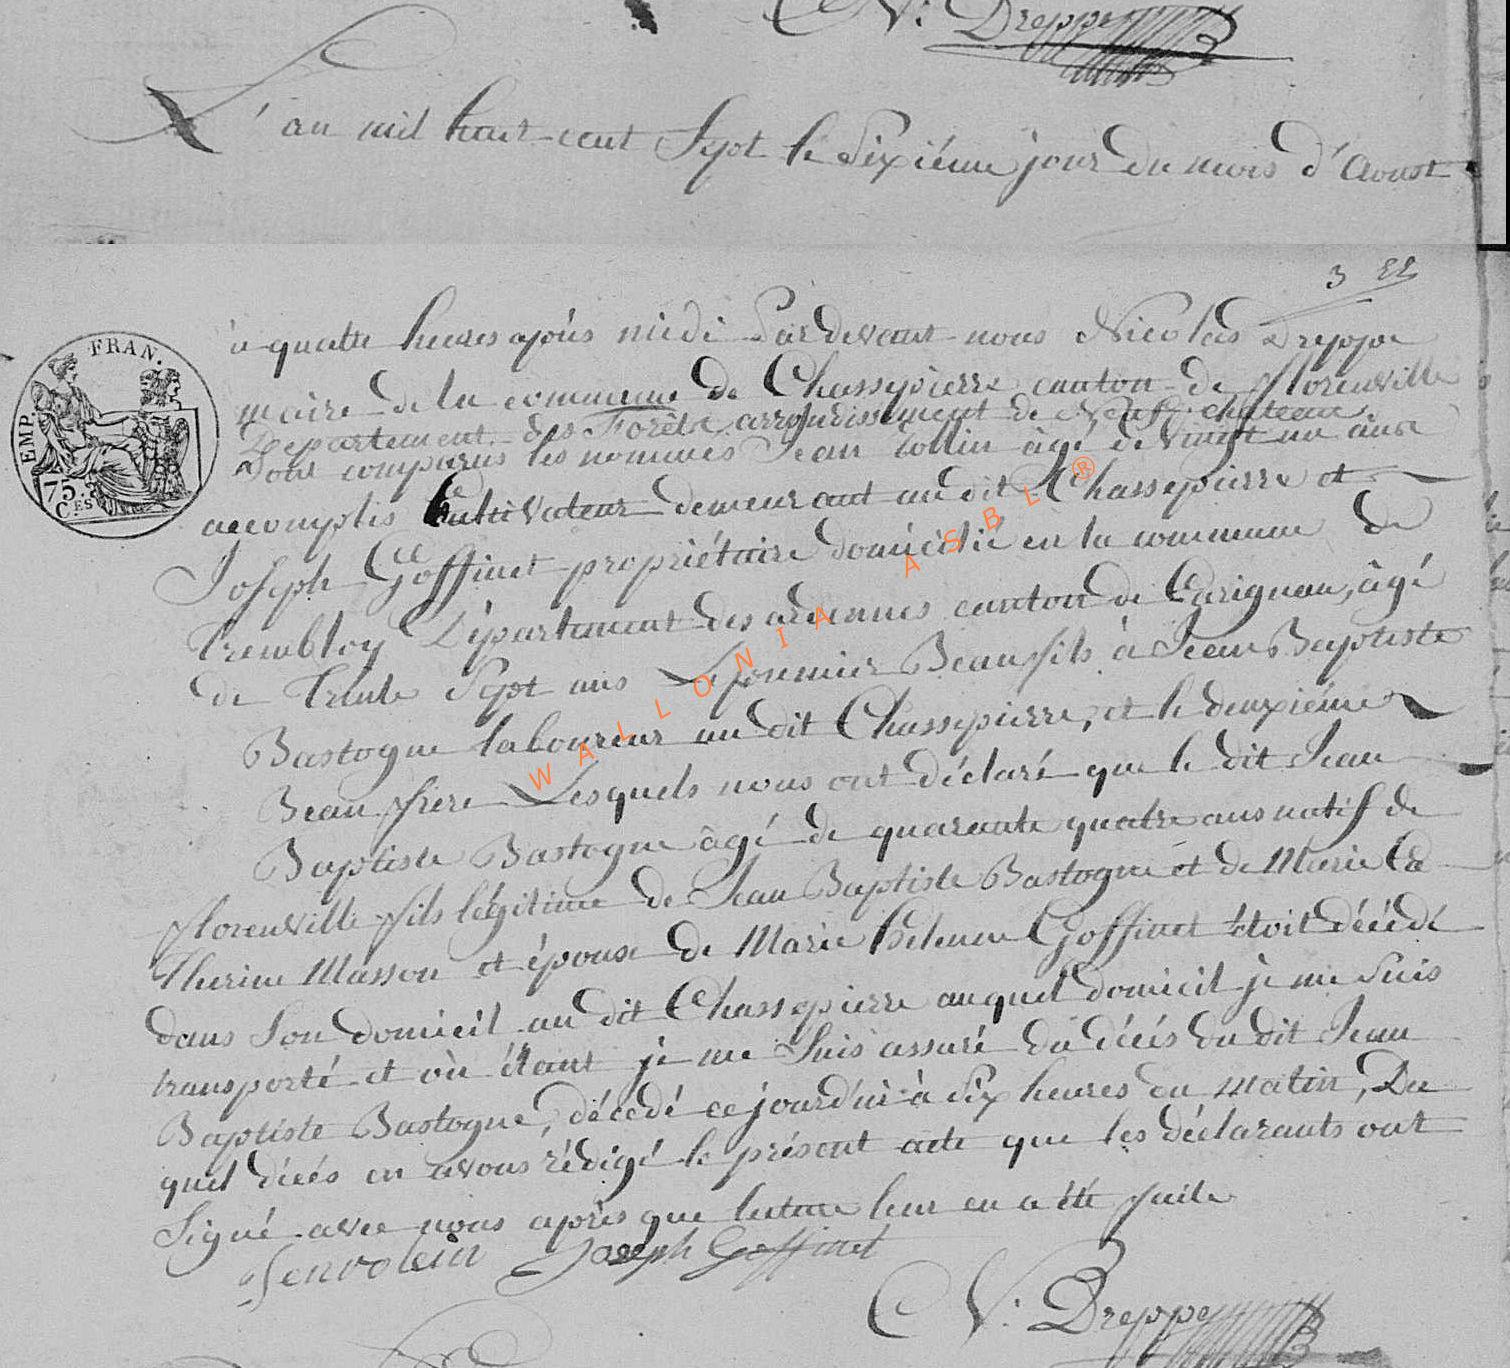 N: Dreppe
L'an mil huit-cent Sept le Sixiéme jour du mois d'Aoust
3
à quatre heures après midi Pardevant nous Nicolas Dreppe
maire de la commune de Chassepierre canton de Florenville
Departement des Forêts arrondissement de Neufchateau
Sont comparus les nommés Jean Collin âgé de vingt un ans
accomplis Cultivateur demeurant au dit Chassepierre et
Joseph Goffinet propriétaire domicilié en la commune de
Trembloy Département des ardennes canton de Carignan, âgé
de Trente Sept ans Le premier Beau fils à Jean Baptiste
Bastogne laboureur au dit Chassepierre, et le deuxiéme
Beau frere Lesquels nous ont déclaré que le dit Jean
Baptiste Bastogne âgé de quarante quatre ans natif de
florenville fils légitime de Jean Baptiste Bastogne et de Marie Ca
therine Masson et épouse de Marie helenne Goffinet étoit décédé
dans Son domicil au dit Chassepierre auquel domicil je me suis
transporté et où étant je me Suis assuré du décés du dit Jean
Baptiste Bastogne, décédé ce jourd'ui à Six heures du matin, Du
quel décés en avons rédigé le présent acte que les déclarants ont
Signé avec nous après que lecture leur en a été faite
Joseph Goffinet
N: Dreppe
EMP. FRAN.
75. CES
WALLONIA ASBL®